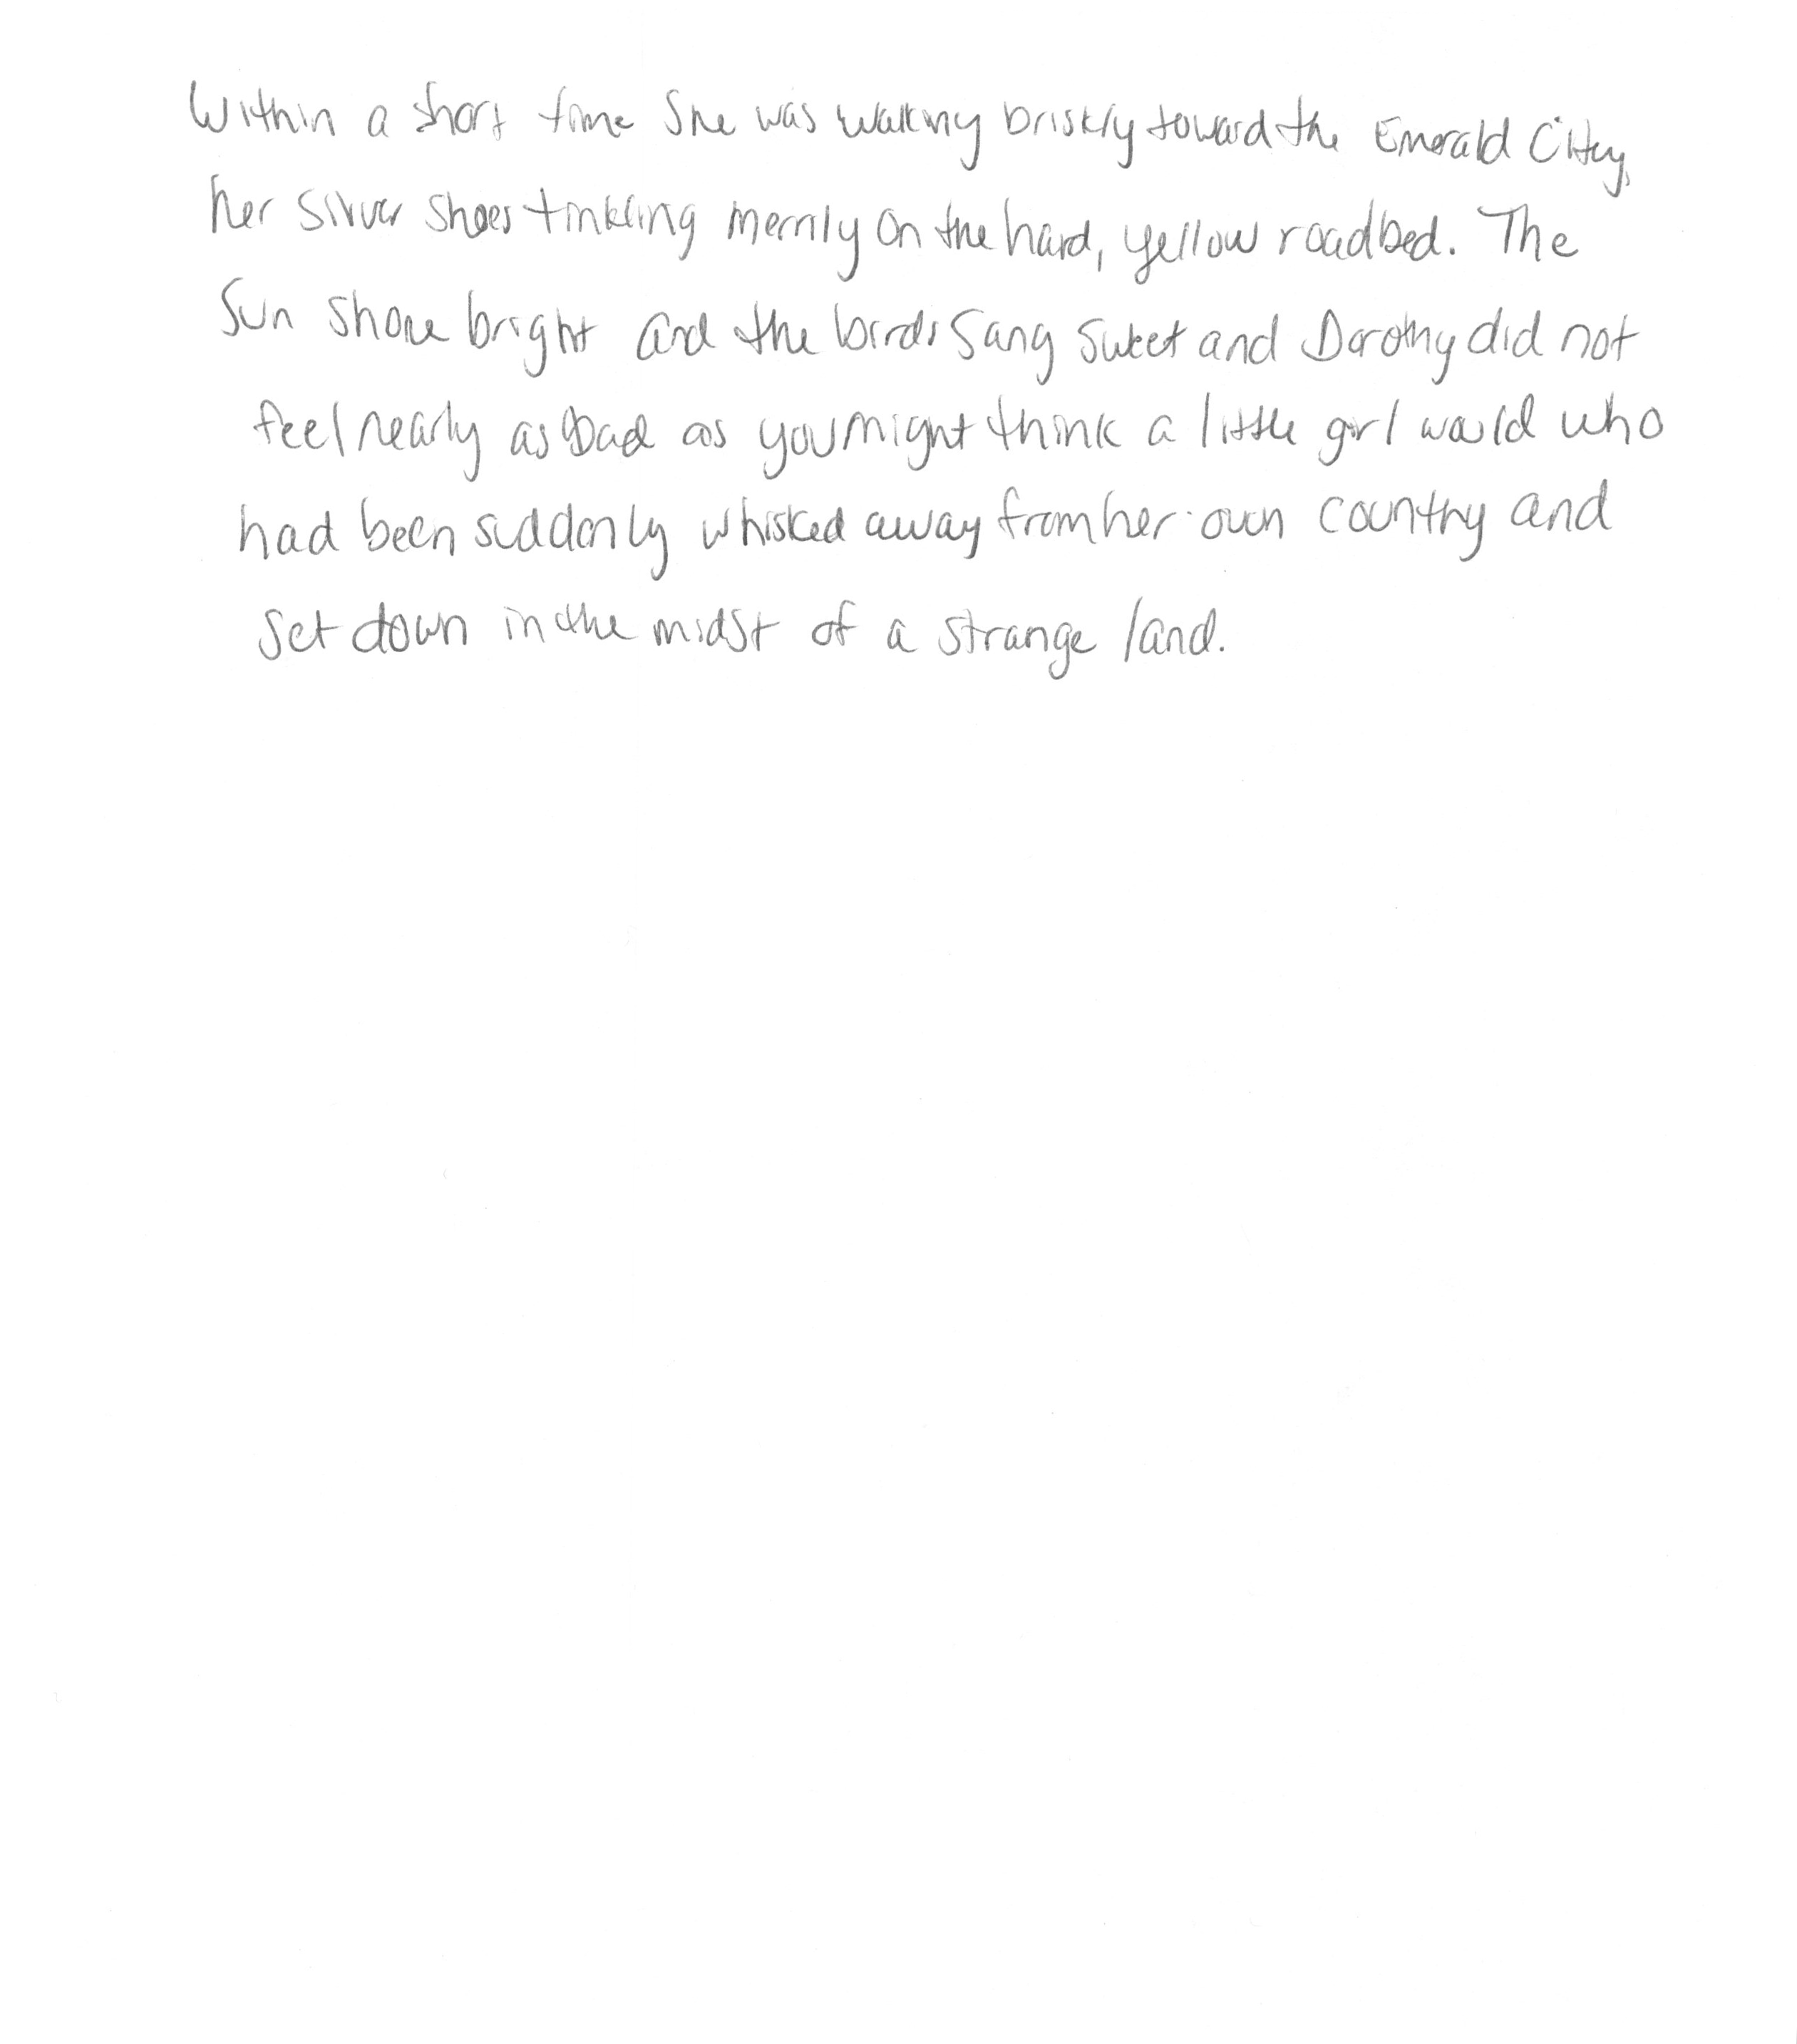 Within a short time she was walking briskly toward the Emerald City,
her silver shoes tinkling merrily on the hard, yellow roadbed. The
sun shone bright and the birds sang sweet and Dorothy did not
feel nearly as bad as you might think a little girl would who
had been suddenly whisked away from her own country and
set down in the midst of a strange land.